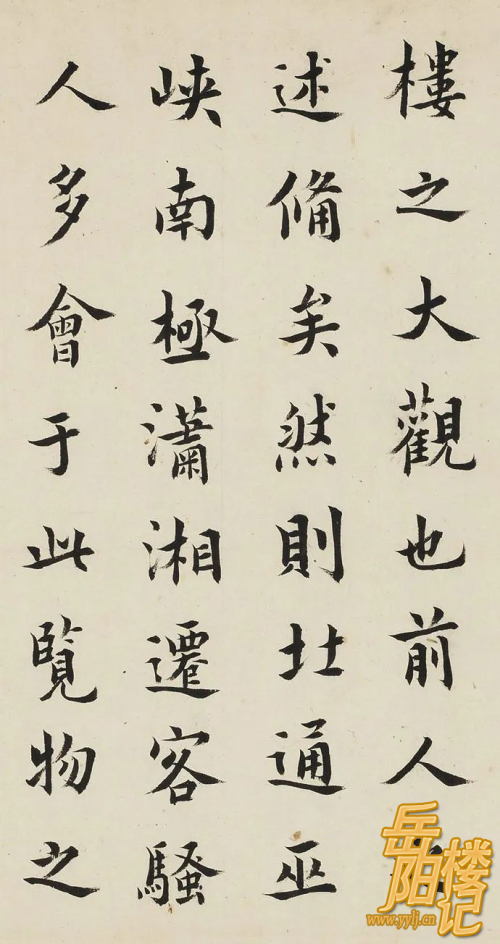 樓之大觀也前人之
述備矣然則北通巫
峽南極瀟湘遷客騷
人多會于此覽物之
岳阳楼记
www.yylj.cn